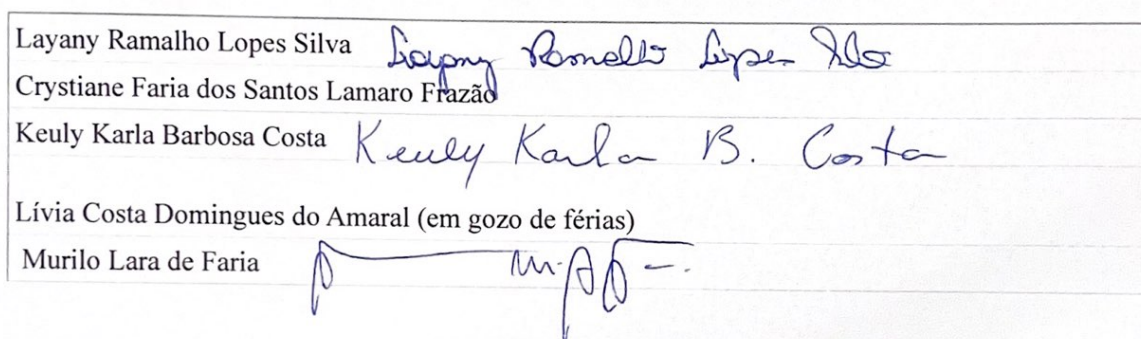 Layany Ramalho Lopes Silva Layany Ramalho Lopes Silva
Crystiane Faria dos Santos Lamaro Frazão
Keuly Karla Barbosa Costa Keuly Karla B. Costa
Lívia Costa Domingues do Amaral (em gozo de férias)
Murilo Lara de Faria